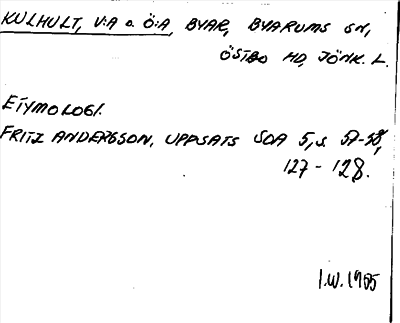 KULHULT, V:A o. Ö:A, BYAR, BYARUMS SN,
ÖSTBO HD, JÖNK. L.
ETYMOLOGI.
FRITZ ANDERSSON, UPPSATS SOA 5, s. 57-58,
127-128.
I.W. 1955